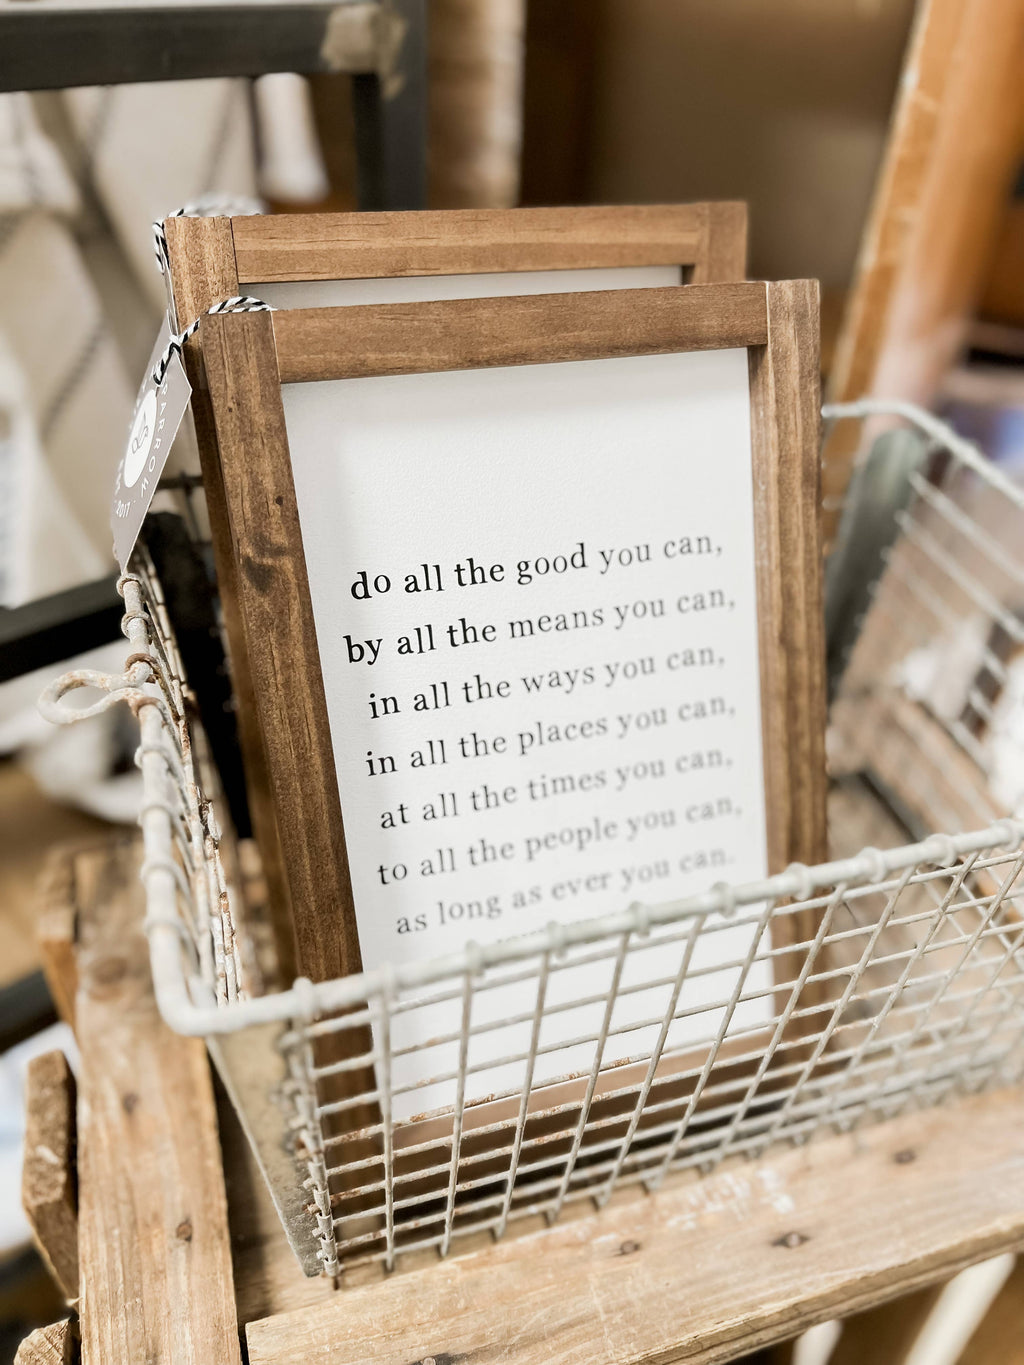 do all the good you can,
by all the means you can,
in all the ways you can,
in all the places you can,
at all the times you can,
to all the people you can,
as long as ever you can.
2017